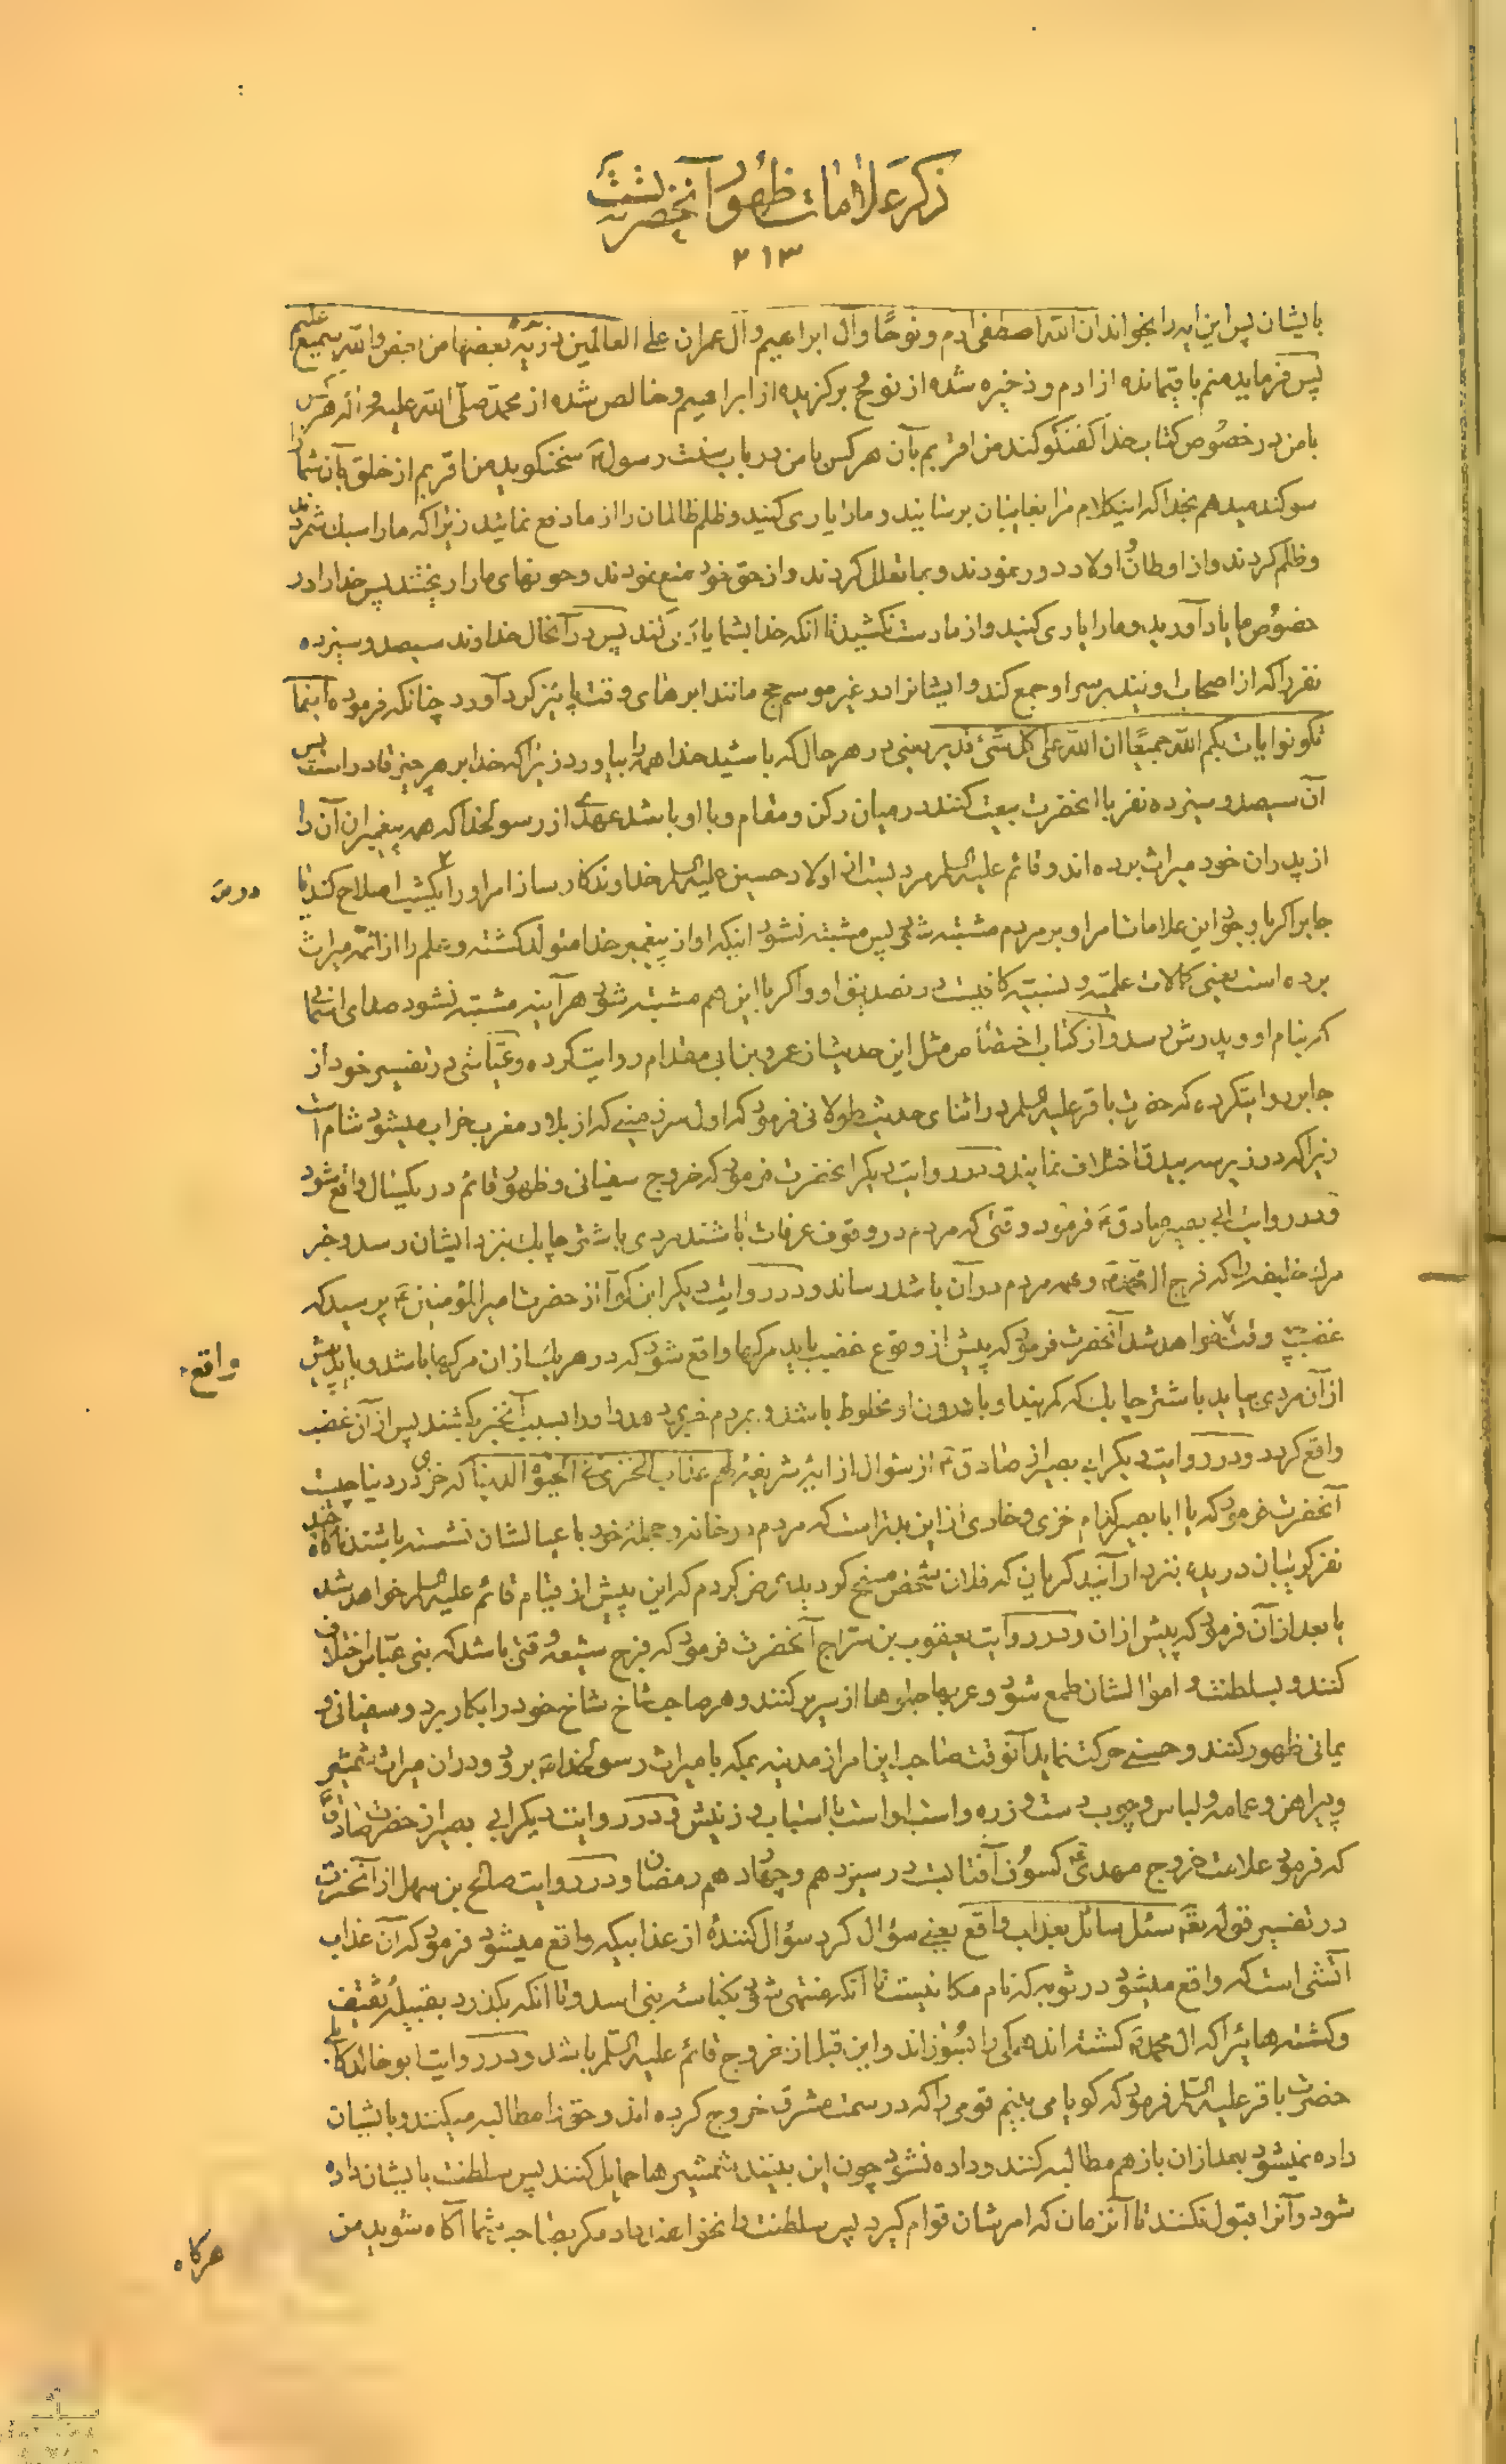 ذکر علامات ظهور آنحضرتست
۲۱۳
بایشان پس این ایه را بخواند ان الله اصطفی ادم و نوحًا و آل ابراهیم و آل عمران علی العالمین ذریّة بعضها من بعض والله سمیع علیم
پس فرماید منم باقیمانده از ادم و ذخیره شده از نوح و برکزیده از ابراهیم و خالص شده از محمّد صلّی الله علیه و اله هرکس
با من در خصوص کتاب خدا کفتکو کند من اقربم بآن هر کس با من در باب سنت رسول سخنکوید من اقربم از خلق بآن شما را
سوکند میدهم بخدا که اینکلام مرا بغایبان برسانید و مارا یاری کنید و ظلم ظالمان را از ما دفع نمائید زیرا که ما را سبک شمردند
و ظلم کردند و از اوطان و اولاد دور نمودند و بما تعلل کردند و از حق خود منع نمودند و خونهای مارا ریختند پس خدارا در
خصوص ما یاد آورید و مارا یاری کنید و از ما دست نکشید تا انکه خدا بشما یاری کند پس در آنحال خداوند سیصد و سیزده
نفر را که از اصحاب اویند بر سر او جمع کند و ایشانرا در غیر موسم حج مانند ابرهای وقت پائیز کرد آورد چنانکه فرموده اینما
تکونوا یات بکم الله جمیعًا ان الله علی کل شئ قدیر یعنی در هر حال که باشید خدا همه را بیاورد زیرا که خدا بر هر چیز قادر است پس
آن سیصد و سیزده نفر با انحضرت بیعت کنند در میان رکن و مقام و با او باشد عهدی از رسولخدا که همه پیغمبران آن را
از پدران خود میراث برده اند و قائم علیه السلم مردیست از اولاد حسین علیه السلم خداوند کارساز امر او را یکشب اصلاح کند یا
دوس
جابر اکر با وجود این علامات امر او بر مردم مشتبه شود پس مشتبه نشود اینکه او از پیغمبر خدا متولد کشته و علم را از ائمّه میراث
برده است یعنی کمالات علمیّه و نسبیّه کافیست در تصدیق او و اکر با این هم مشتبه شود هر آینه مشتبه نشود صدای اسمانی
که بنام او و پدرش رسد و از کتاب اختصاص مثل این حدیث از عمرو بن ابی مقدام روایت کرده و عیّاشی در تفسیر خود از
جابر روایتکرده که حضرت باقر علیه السلم در اثنای حدیث طولانی فرمود که اول سرزمینی که از بلاد مغرب خراب میشود شام است
زیرا که در زیر سه بیدق اختلاف نمایند و در روایت دیکر انحضرت فرمود که خروج سفیانی و ظهور قائم در یکسال واقع شود
و در روایت ابی بصیر صادق فرمود وقتی که مردم در وقوف عرفات باشند مردی با شتر چابک بنزد ایشان رسد و خبر
مرک خلیفه را که فرج ال محمّد و همه مردم در آن باشد رساند و در روایت دیکر ابن کوا از حضرت امیر المؤمنین پرسید که
غضب چه وقت خواهد شد انحضرت فرمود که پیش از وقوع غضب باید مرکها واقع شود که در هر یک از ان مرکها باشد و باید پیش
واقع
از آن مردی بیاید با شتر چابک که کمربند او با درون او مخلوط باشد و بمردم خبری دهد او را بسبب آنخبر بکشند پس از آن غضب
واقع کردد و در روایت دیکر ابی بصیر از صادق از سؤال از ایه شریفه لهم عذاب الخزی فی الحیوة الدنیا که خزی در دنیا چیست
آنحضرت فرمود که یا ابا بصیر کدام خزی و خاری از این بدتر است که مردم در خانه و حجله خود با عیالشان نشسته باشند ناکاه
نفر کریبان دریده بنزد او آیند که فلان شخص مسخ کردید عرض کردم که این پیش از قیام قائم علیه السلم خواهد شد
یا بعد از آن فرمود که پیش از ان و در روایت یعقوب بن سراج آنحضرت فرمود که فرج شیعه وقتی باشد که بنی عبّاس اختلاف
کنند و بسلطنت و اموالشان طمع شود و عربها جلوها از سر برکنند و هر صاحب شاخ شاخ خود را بکار برد و سفیانی و
یمانی ظهور کنند و حسنی حرکت نماید آنوقت صاحب این امر از مدینه بمکه با میراث رسولخدا برود و در ان میراث شمشیر
و پیراهن و عمامه و لباس و چوب دست و زره و اسب اوست با اسباب و زینش و در روایت دیکر ابی بصیر از حضرت صادق
که فرمود علامت خروج مهدی کسوف آفتابست در سیزدهم و چهاردهم رمضان و در روایت صالح بن سهل از آنحضرت
در تفسیر قوله تعه سئل سائل بعذاب واقع یعنی سؤال کرد سؤال کننده از عذابیکه واقع میشود فرمود که آن عذاب
آتشی است که واقع میشود در ثویه که نام مکانیست تا آنکه منتهی شود بکناسه بنی اسد و تا انکه بکذرد بقبیله ثقیف
و کشته هائیرا که ال محمد کشته اند همکی را بسوزاند و این قبل از خروج قائم علیه السّلم باشد و در روایت ابو خالد کابلی
حضرت باقر علیه السلم فرمود که کویا می بینم قومی را که در سمت مشرق خروج کرده اند و حق را مطالبه میکنند و بایشان
داده نمیشود بعد از ان باز هم مطالبه کنند و داده نشود چون این بینند شمشیرها حمایل کنند پس سلطنت بایشان داده
شود و آنرا قبول نکنند تا آنزمان که امرشان قوام کیرد پس سلطنت را نخواهند داد مکر بصاحب شما آکاه شوید من
هرکاه